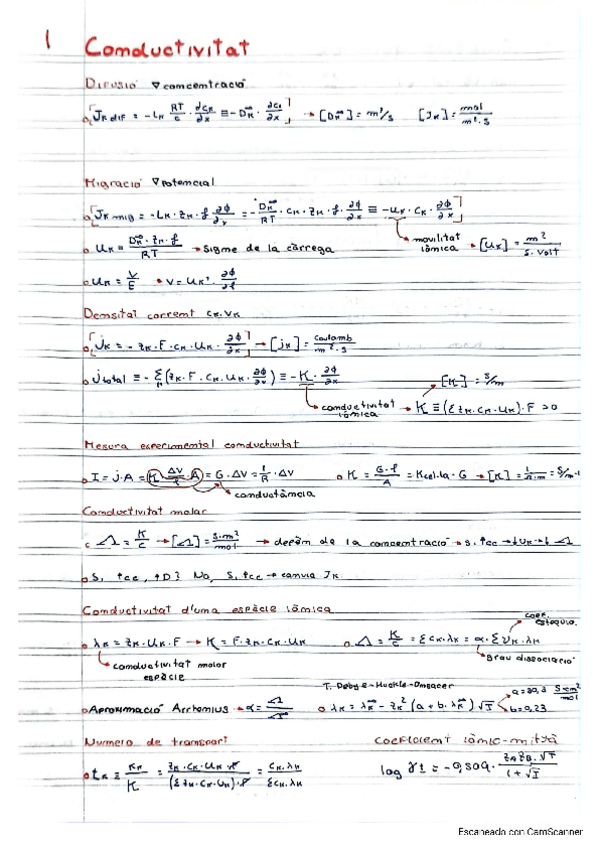 1 Conductivitat
Difusió ∇ concentració
[Jk dif = -Lk RT/c · ∂ck/∂x ≡ -Dk^∞ · ∂ck/∂x] → [Dk^∞] = m²/s [Jk] = mol/m²·s
Migració ∇ potencial
[Jk mig = -Lk · zk · f · ∂ϕ/∂x = -Dk^∞/RT · ck · zk · f · ∂ϕ/∂x ≡ -uk · ck · ∂ϕ/∂x]
uk = Dk^∞ · zk · f / RT → signe de la càrrega
movilitat iònica → [uk] = m²/s·volt
uk = v/E • v = uk · ∂ϕ/∂
Densitat corrent ck·vk
[jk = - zk · F · ck · uk · ∂ϕ/∂x] → [jk] = coulomb/m²·s
j total ≡ - Σ(zk · F · ck · uk · ∂ϕ/∂x) ≡ -K · ∂ϕ/∂x [K] = S/m
conductivitat iònica → K ≡ (Σ zk · ck · uk) · F > 0
Mesura experimental conductivitat
I = j·A = (K ΔV/l · A) = G · ΔV = 1/R · ΔV K = G·l/A = Kcel·la · G → [K] = 1/Ω·m = S/m
conductància
Conductivitat molar
Λ = K/c → [Λ] = S·m²/mol → depèn de la concentració → s. ↑cc → ↓uk → ↓ Λ
S. ↑cc, ↑D? No, S. ↑cc → canvia Jk
Conductivitat d'una espècie iònica
coef. estequio.
λk = zk · uk · F → K = F · zk · ck · uk Λ = K/c = Σ ck · λk = α · Σ νk · λk
conductivitat molar espècie
grau dissociació
T. Debye-Huckle-Onsager
Aproximació Arrhenius → α = Λ/Λ^∞ λk = λk^∞ - zk² (a + b · λk^∞) √I a = 30,3 S·cm²/mol b = 0,23
Numero de transport Coeficient iònic-mitjà
tk ≡ Kk/K = zk · ck · uk · F / (Σ zk · ck · uk) · F = ck · λk / Σ ck · λk log γ± = -0,509 · zA zB · √I / 1 + √I
Escaneado con CamScanner